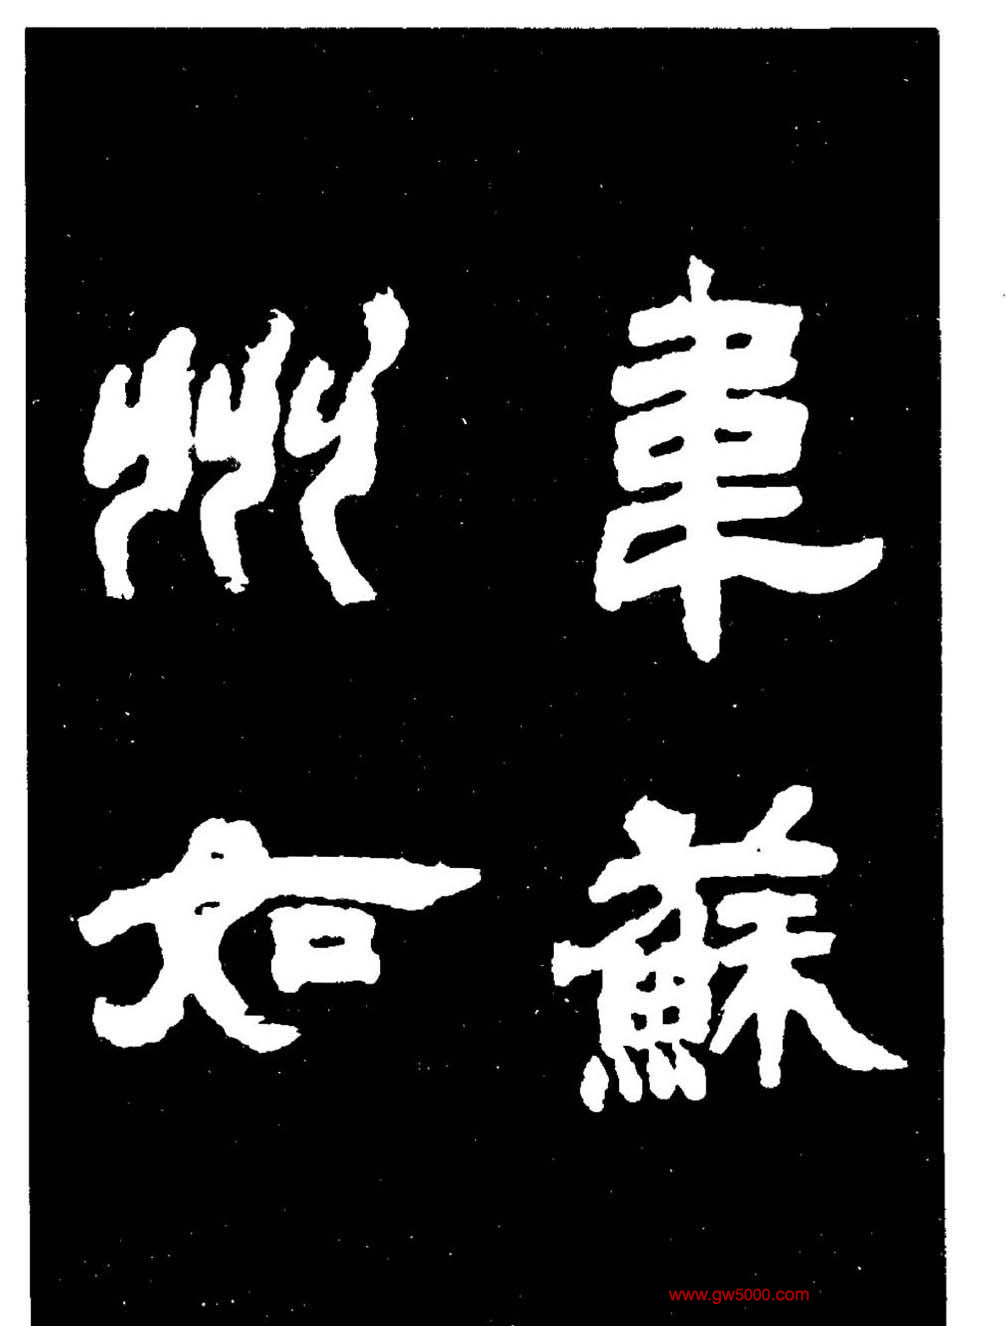 韋蘇
州如
www.gw5000.com